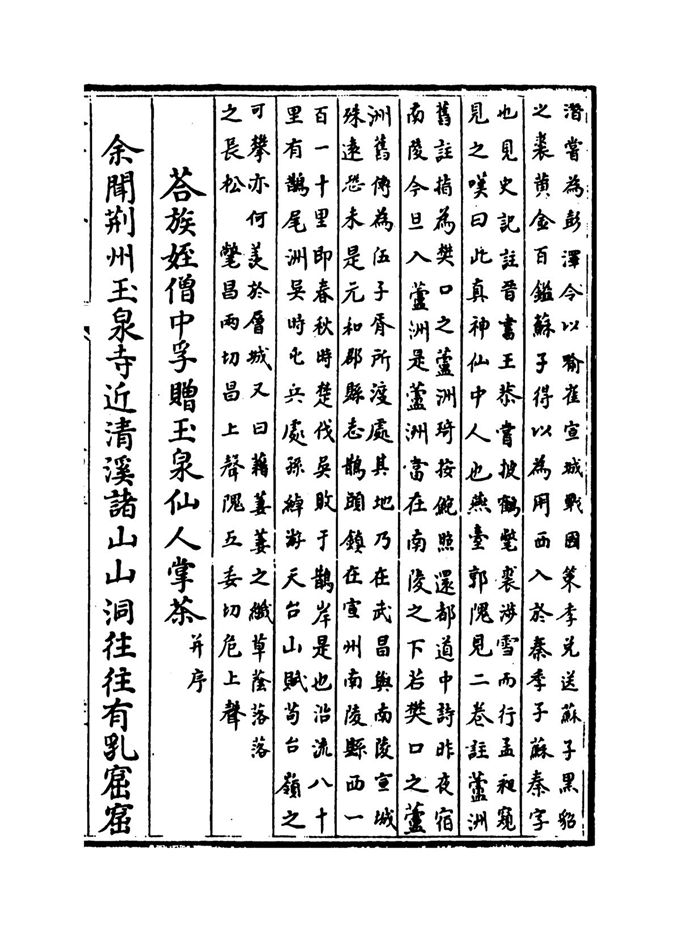 潛嘗為彭澤令以喻崔宣城戰國策李兌送蘇子黑貂
之裘黄金百鎰蘇子得以為用西入於秦季子蘇秦字
也見史記註晉書王恭嘗披鶴氅裘涉雪而行孟昶窺
見之嘆曰此真神仙中人也燕臺郭隗見二卷註蘆洲
舊註指為樊口之蘆洲琦按鮑照還都道中詩昨夜宿
南陵今旦入蘆洲是蘆洲當在南陵之下若樊口之蘆
洲舊傳為伍子胥所渡處其地乃在武昌與南陵宣城
殊遠恐未是元和郡縣志鵲頭鎮在宣州南陵縣西一
百一十里即春秋時楚伐吳敗于鵲岸是也沿流八十
里有鵲尾洲吳時屯兵處孫綽游天台山賦苟台嶺之
可攀亦何羨於層城又曰藉萋萋之纖草蔭落落
之長松 氅昌兩切昌上聲隗五委切危上聲
荅族姪僧中孚贈玉泉仙人掌茶并序
余聞荆州玉泉寺近清溪諸山山洞往往有乳窟窟